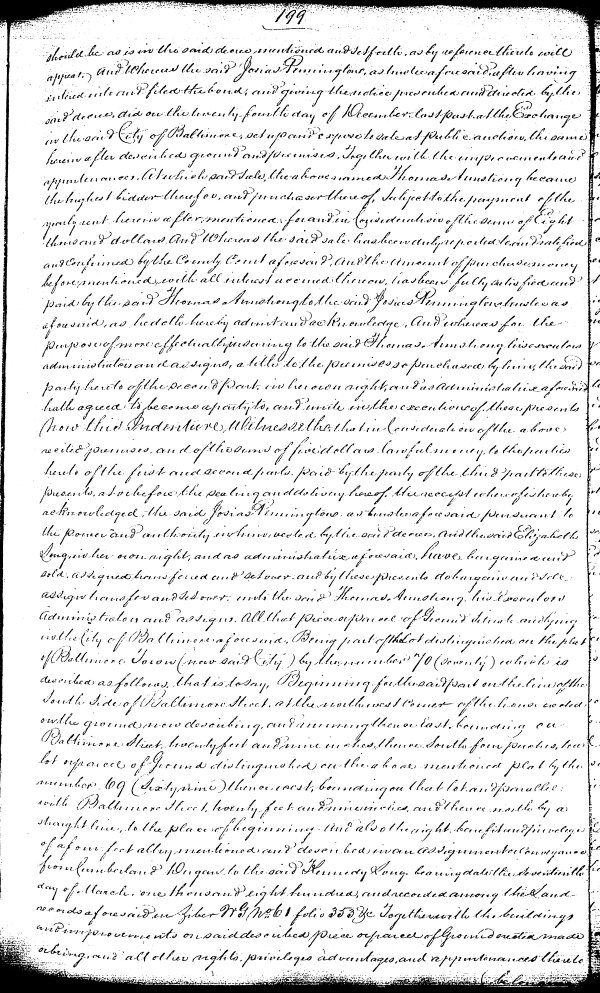 199
should be as is in the said decree mentioned and set forth, as by reference thereto will
appear. And Whereas the said Josias Pennington, as trustee aforesaid, after having
entered into and filed the bond, and giving the notice prescribed and directed by the
said decree, did on the twenty fourth day of December last past at the Exchange
in the said City of Baltimore, set up and expose to sale at public auction, the same
herein after described ground and premises, Together with the improvements and
appurtenances. At which said sale, the above named Thomas Armstrong became
the highest bidder therefor, and purchaser thereof, Subject to the payment of the
yearly rent herein after mentioned, for and in Consideration of the sum of Eight
thousand dollars. And Whereas the said sale has been duly reported to and ratified
and Confirmed by the County Court aforesaid, And the Amount of purchase money
before mentioned, with all interest accrued thereon, has been fully satisfied and
paid by the said Thomas Armstrong to the said Josias Pennington, trustee as
aforesaid, as he doth hereby admit and acknowledge, And whereas for the
purpose of more effectually securing to the said Thomas Armstrong his executors
administrators and assigns, a title to the premises so purchased by him, the said
party hereto of the second part, in her own right, and as Administratrix aforesaid
hath agreed to become a party to, and unite in the execution of these presents
Now this Indenture Witnesseth that in Consideration of the above
recited premises, and of the sum of five dollars lawful money, to the parties
hereto of the first and second parts, paid by the party of the third part to these
presents, at or before the sealing and delivery hereof, the receipt whereof is hereby
acknowledged, the said Josias Pennington as trustee aforesaid pursuant to
the power and authority in him vested by the said decree, and the said Elizabeth
Long in her own right, and as administratrix aforesaid, have bargained and
sold, assigned transferred and set over, and by these presents do bargain and sell
assign transfer and set over unto the said Thomas Armstrong, his Executors
Administrators and assigns. All that piece or parcel of Ground situate and lying
in the City of Baltimore aforesaid, Being part of the lot distinguished on the plat
of Baltimore Town (now said City) by the number 70 (seventy) which is
described as follows, that is to say, Beginning for the said part on the line of the
South side of Baltimore Street, at the northwest corner of the house erected
on the ground now describing, and running thence East, bounding on
Baltimore Street, twenty feet and nine inches, thence South four perches, to a
lot or parcel of Ground distinguished on the above mentioned plat by the
number 69 (Sixty nine) thence west, bounding on that lot and parallel
with Baltimore Street, twenty feet and nine inches, and thence north by a
straight line, to the place of beginning. And also the right, benefit and privilege
of a four feet alley, mentioned and described in an assignment or Conveyance
from Cumberland Dugan, to the said Kennedy Long, bearing date the seventeenth
day of March, one thousand eight hundred, and recorded among the Land
records aforesaid in Liber W.G. No. 61 folio 353 &c Together with the buildings
and improvements on said described piece or parcel of Ground erected made
or being, and all other rights, privileges advantages, and appurtenances thereto